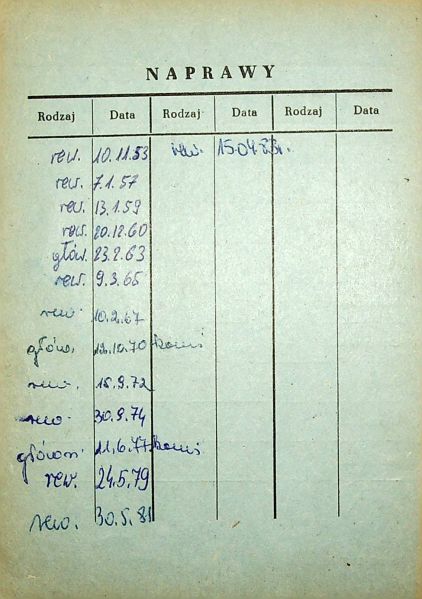 NAPRAWY
Rodzaj Data Rodzaj Data Rodzaj Data
rew. 10.11.53 rew. 15.04.83r.
rew. 7.1.57
rew. 13.1.59
rew. 20.12.60
głów. 23.2.63
rew. 9.3.65
rew. 10.2.67
główn. 12.12.70
rew. 15.9.72
rew. 30.9.74
główn. 21.6.77
rew. 24.5.79
rew. 30.5.81